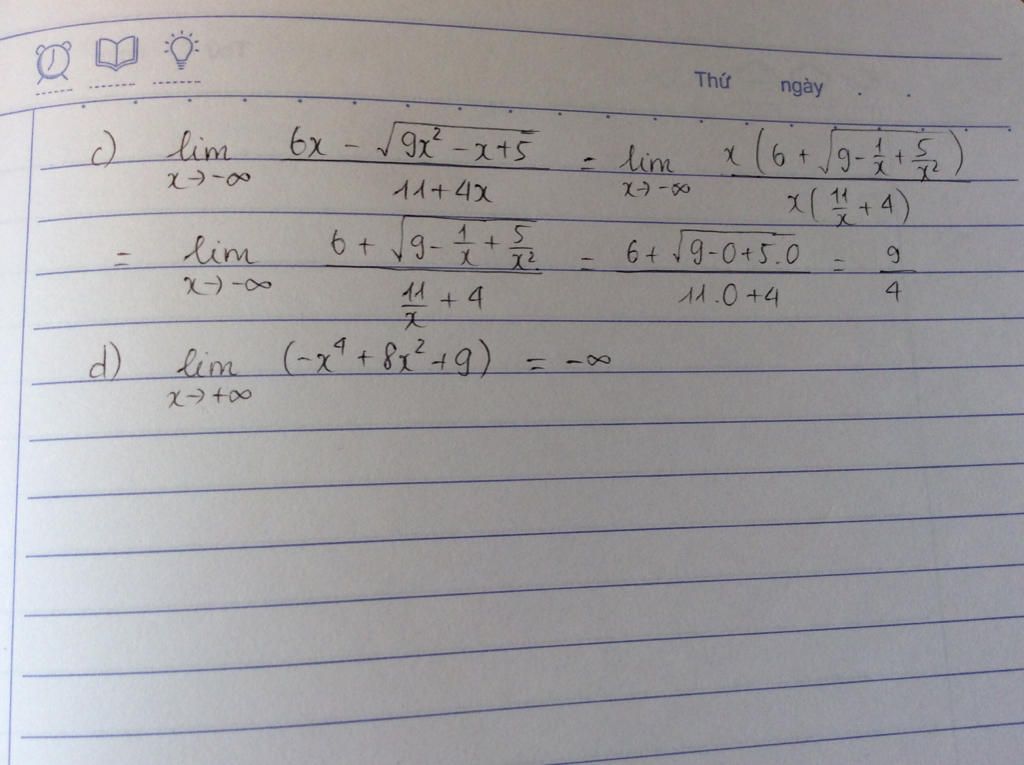 Thứ ngày . .
c) lim x→-∞ (6x - √(9x² - x + 5)) / (11 + 4x) = lim x→-∞ x(6 + √(9 - 1/x + 5/x²)) / x(11/x + 4)
= lim x→-∞ (6 + √(9 - 1/x + 5/x²)) / (11/x + 4) = (6 + √(9 - 0 + 5.0)) / (11.0 + 4) = 9/4
d) lim x→+∞ (-x⁴ + 8x² + 9) = -∞